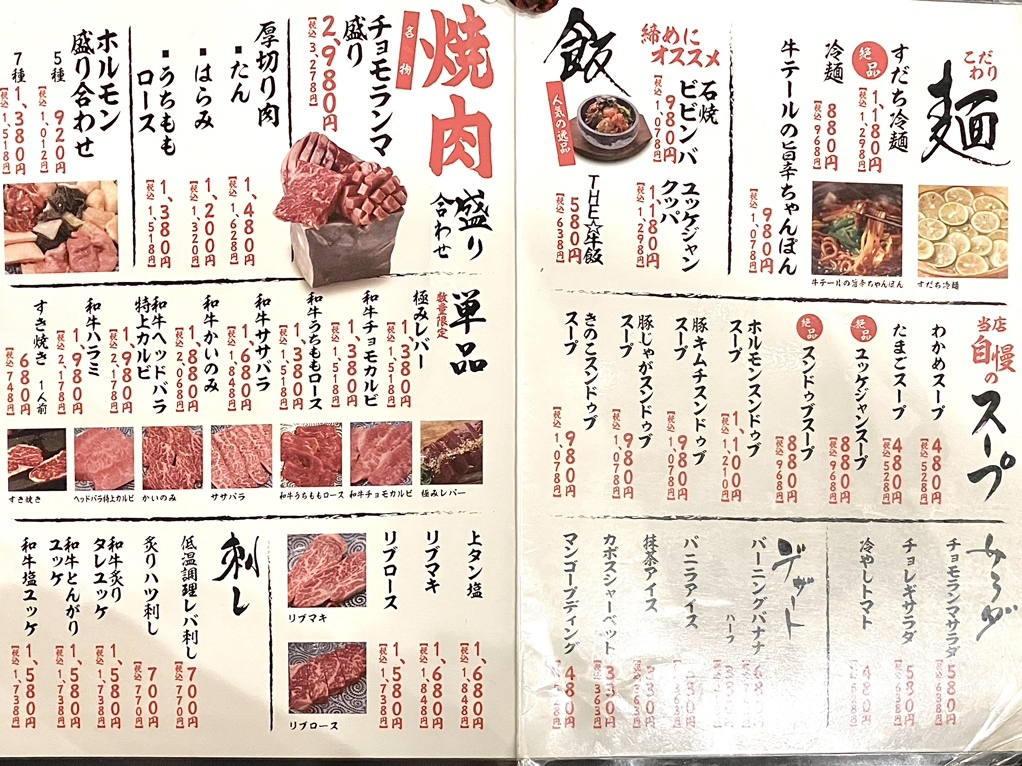 麺
こだわり
すだち冷麺
絶品
1,180円
【税込 1,298円】
冷麺
880円
【税込 968円】
牛テールの旨辛ちゃんぽん
980円
【税込 1,078円】
すだち冷麺
牛テールの旨辛ちゃんぽん
飯
締めに
オススメ
石焼
ビビンバ
980円
【税込 1,078円】
人気の逸品
ユッケジャン
クッパ
1,180円
【税込 1,298円】
THE☆牛飯
580円
【税込 638円】
当店
自慢
の
スープ
わかめスープ
480円
【税込 528円】
たまごスープ
480円
【税込 528円】
絶品
ユッケジャンスープ
880円
【税込 968円】
絶品
スンドゥブスープ
880円
【税込 968円】
ホルモンスンドゥブ
スープ
1,100円
【税込 1,210円】
豚キムチスンドゥブ
スープ
980円
【税込 1,078円】
豚じゃがスンドゥブ
スープ
980円
【税込 1,078円】
きのこスンドゥブ
スープ
980円
【税込 1,078円】
サラダ
チョモランマサラダ
580円
【税込 638円】
チョレギサラダ
580円
【税込 638円】
冷やしトマト
480円
デザート
バーニングバナナ
ハーフ
バニラアイス
抹茶アイス
330円
【税込 363円】
カボスシャーベット
330円
【税込 363円】
マンゴープディング
480円
焼肉
名物
盛り
合わせ
チョモランマ
盛り
2,980円
【税込 3,278円】
厚切り肉
▪たん
1,480円
【税込 1,628円】
▪はらみ
1,200円
【税込 1,320円】
▪うちもも
ロース
1,380円
【税込 1,518円】
ホルモン
盛り合わせ
5種
920円
【税込 1,012円】
7種
1,380円
【税込 1,518円】
単品
数量限定
極みレバー
1,380円
【税込 1,518円】
和牛チョモカルビ
1,380円
【税込 1,518円】
和牛うちももロース
1,380円
【税込 1,518円】
和牛ササバラ
1,680円
【税込 1,848円】
和牛かいのみ
1,880円
【税込 2,068円】
和牛ヘッドバラ
特上カルビ
1,980円
【税込 2,178円】
和牛ハラミ
1,980円
【税込 2,178円】
すき焼き 1人前
680円
【税込 748円】
すき焼き
ヘッドバラ特上カルビ
かいのみ
ササバラ
和牛うちももロース
和牛チョモカルビ
極みレバー
上タン塩
1,680円
【税込 1,848円】
リブマキ
1,680円
【税込 1,848円】
リブロース
1,580円
【税込 1,738円】
リブマキ
リブロース
刺し
低温調理レバ刺し
700円
【税込 770円】
炙りハツ刺し
700円
【税込 770円】
和牛炙り
タレユッケ
1,580円
【税込 1,738円】
和牛とんがり
ユッケ
1,580円
【税込 1,738円】
和牛塩ユッケ
1,580円
【税込 1,738円】